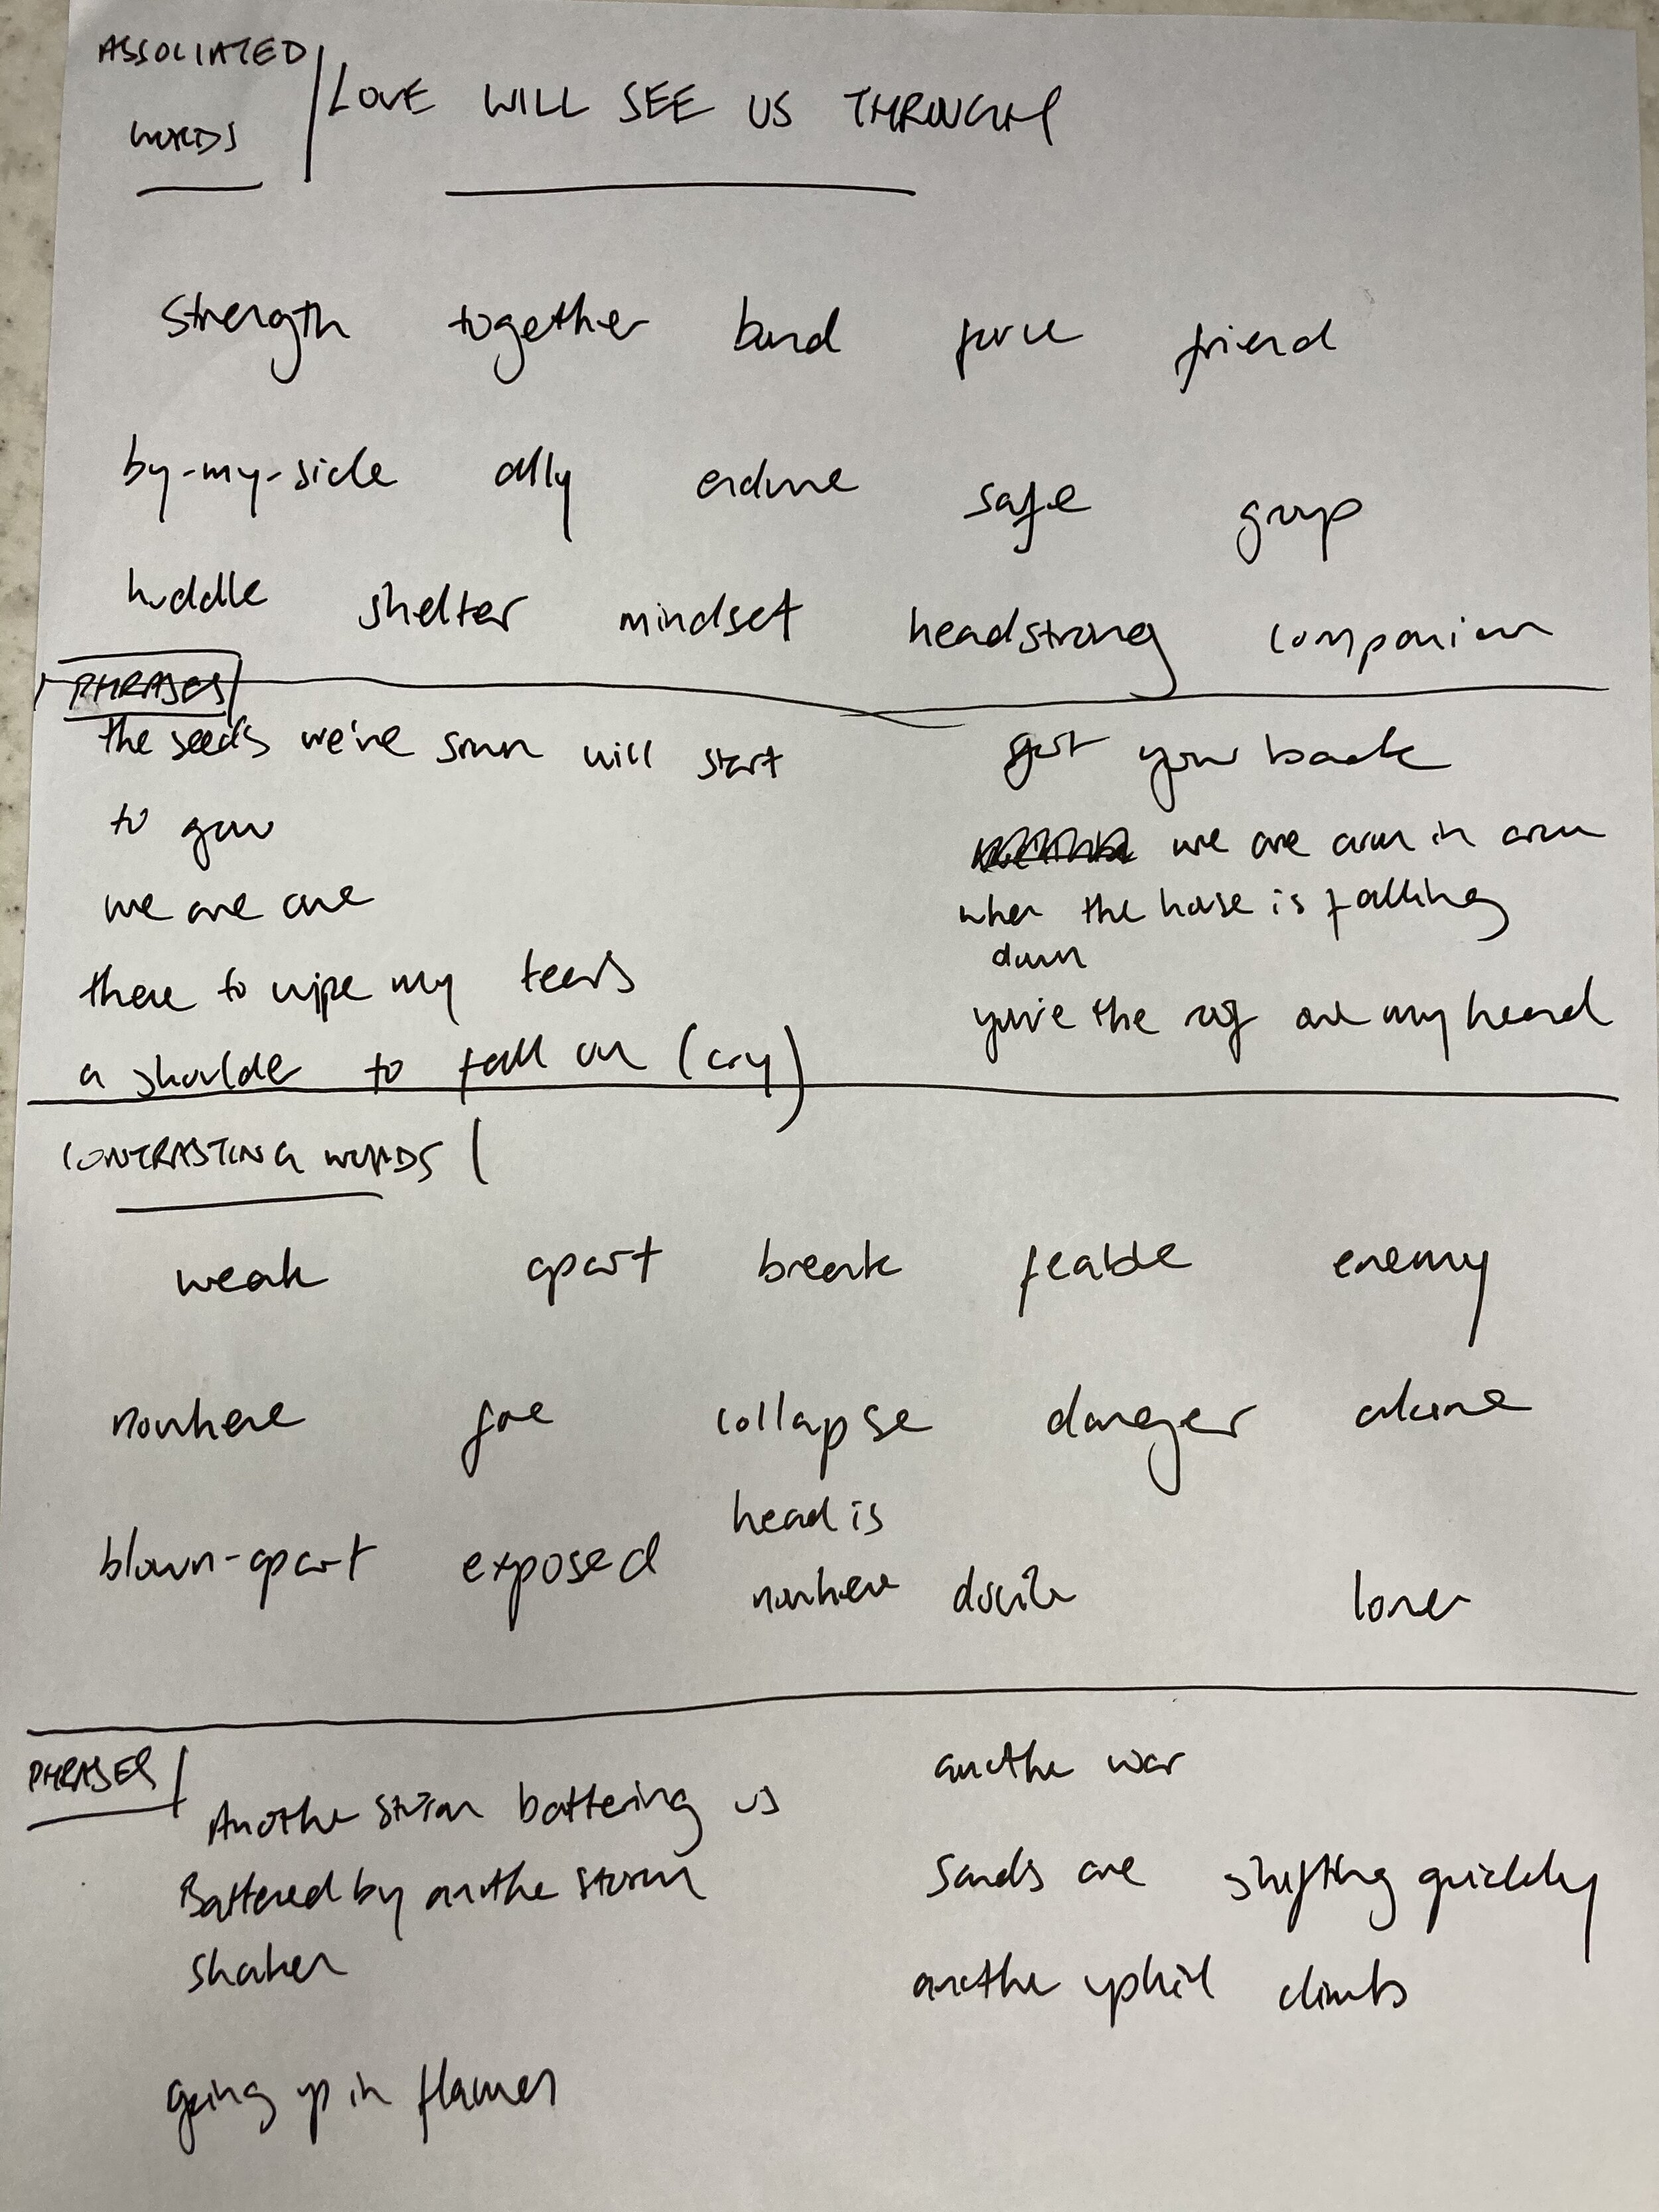 ASSOCIATED
WORDS
LOVE WILL SEE US THROUGH
strength together bond force friend
by-my-side ally endure safe group
huddle shelter mindset headstrong companion
PHRASES
the seeds we've sown will start
to grow
we are one
there to wipe my tears
a shoulder to fall on (cry)
got your back
we are arm in arm
when the house is falling
down
you're the roof over my head
CONTRASTING WORDS
weak apart break feable enemy
nowhere foe collapse danger alone
blown-apart exposed head is
nowhere docile loner
PHRASES
Another storm battering us
Battered by another storm
shaken
going up in flames
another war
Sands are shifting quickly
another uphill climb